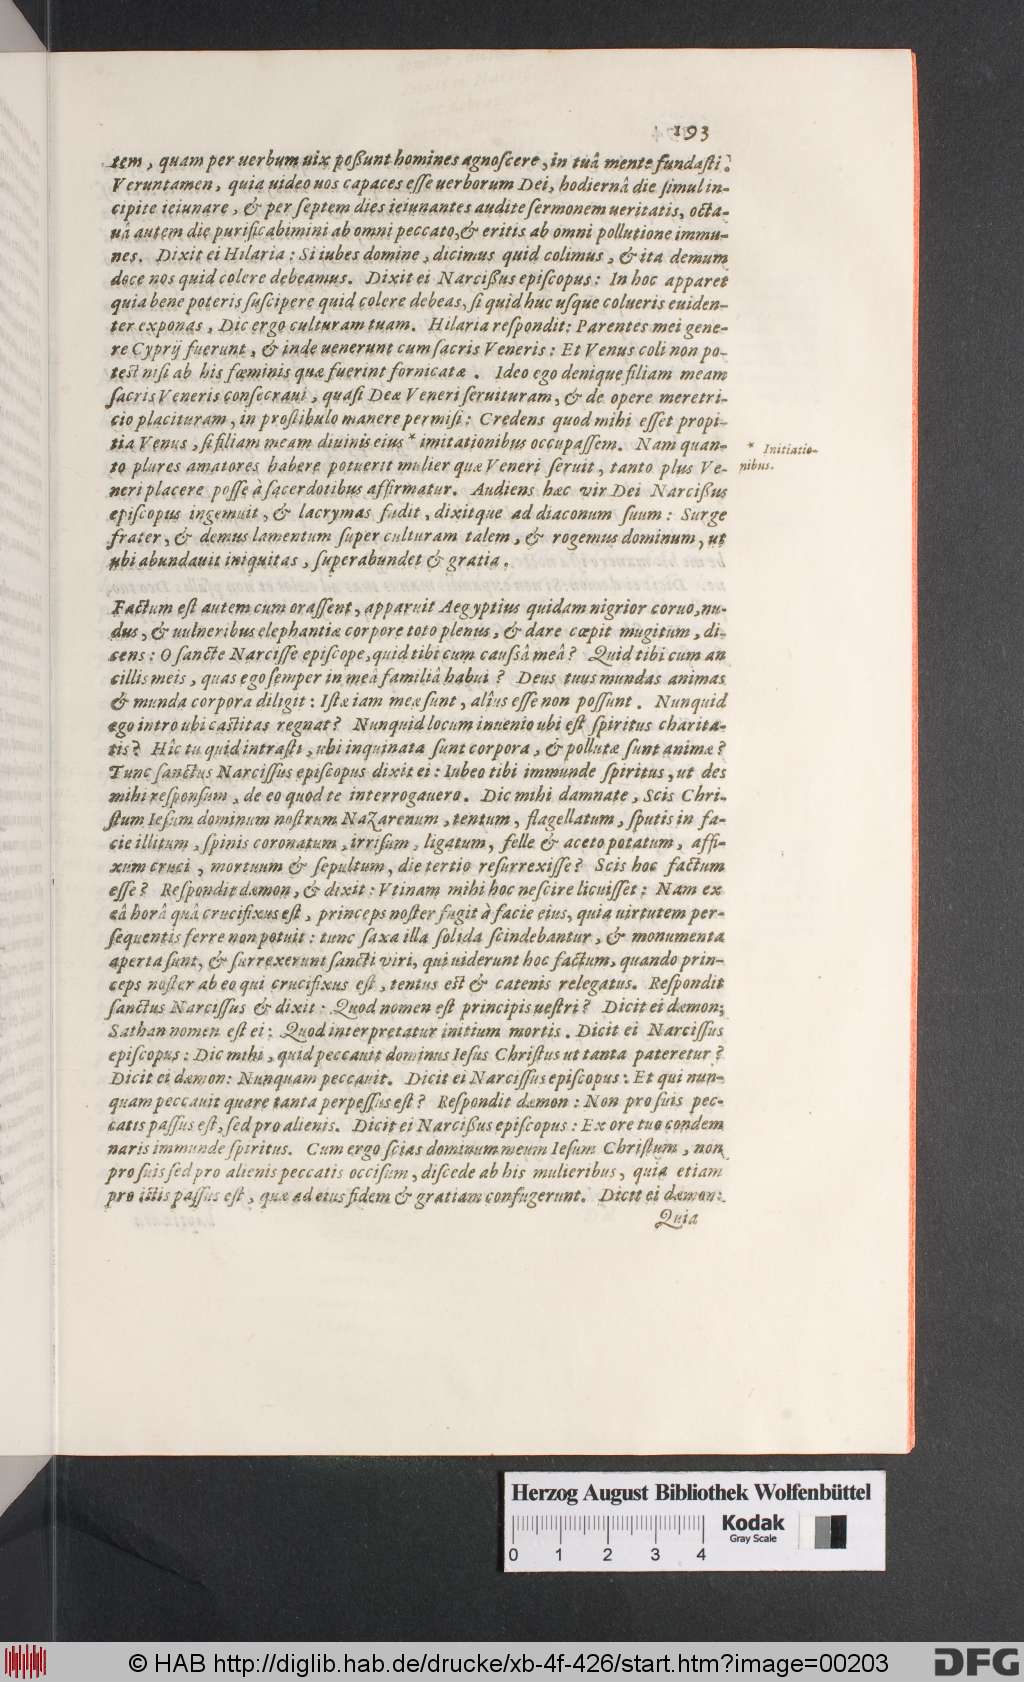 193
tem, quam per uerbum uix poßunt homines agnoſcere, in tuâ mente fundaſti.
Veruntamen, quia uideo uos capaces eſſe uerborum Dei, hodiernâ die ſimul in-
cipite ieiunare, & per ſeptem dies ieiunantes audite ſermonem ueritatis, octa-
uâ autem die purificabimini ab omni peccato, & eritis ab omni pollutione immu-
nes. Dixit ei Hilaria: Si iubes domine, dicimus quid colimus, & ita demum
doce nos quid colere debeamus. Dixit ei Narcißus epiſcopus: In hoc apparet
quia bene poteris ſuſcipere quid colere debeas, ſi quid huc uſque colueris euiden-
ter exponas, Dic ergo culturam tuam. Hilaria reſpondit: Parentes mei gene-
re Cyprij fuerunt, & inde uenerunt cum ſacris Veneris: Et Venus coli non po-
teſt niſi ab his fœminis quæ fuerint fornicatæ. Ideo ego denique filiam meam
ſacris Veneris conſecraui, quaſi Deæ Veneri ſeruituram, & de opere meretri-
cio placituram, in proſtibulo manere permiſi: Credens quod mihi eſſet propi-
tia Venus, ſi filiam meam diuinis eius * imitationibus occupaſſem. Nam quan-
to plures amatores habere potuerit mulier quæ Veneri ſeruit, tanto plus Ve-
neri placere poſſe à ſacerdotibus affirmatur. Audiens hæc vir Dei Narcißus
epiſcopus ingemuit, & lacrymas fudit, dixitque ad diaconum ſuum: Surge
frater, & demus lamentum ſuper culturam talem, & rogemus dominum, ut
ubi abundauit iniquitas, ſuperabundet & gratia.
* Initiatio-
nibus.
Factum eſt autem cum oraſſent, apparuit Aegyptius quidam nigrior coruo, nu-
dus, & uulneribus elephantiæ corpore toto plenus, & dare cœpit mugitum, di-
cens: O ſancte Narciſſe epiſcope, quid tibi cum cauſsâ meâ? Quid tibi cum an
cillis meis, quas ego ſemper in meâ familiâ habui? Deus tuus mundas animas
& munda corpora diligit: Iſtæ iam meæ ſunt, alîus eſſe non poſſunt. Nunquid
ego intro ubi caſtitas regnat? Nunquid locum inuenio ubi eſt ſpiritus charita-
tis? Hic tu quid intraſti, ubi inquinata ſunt corpora, & pollutæ ſunt animæ?
Tunc ſanctus Narciſſus epiſcopus dixit ei: Iubeo tibi immunde ſpiritus, ut des
mihi reſponſum, de eo quod te interrogauero. Dic mihi damnate, Scis Chri-
ſtum Ieſum dominum noſtrum Nazarenum, tentum, flagellatum, ſputis in fa-
cie illitum, ſpinis coronatum, irriſum, ligatum, felle & aceto potatum, affi-
xum cruci, mortuum & ſepultum, die tertio reſurrexiſſe? Scis hoc factum
eſſe? Reſpondit dæmon, & dixit: Vtinam mihi hoc neſcire licuiſſet: Nam ex
eâ horâ quâ crucifixus eſt, princeps noſter fugit à facie eius, quia uirtutem per-
ſequentis ferre non potuit: tunc ſaxa illa ſolida ſcindebantur, & monumenta
aperta ſunt, & ſurrexerunt ſancti viri, qui uiderunt hoc factum, quando prin-
ceps noſter ab eo qui crucifixus eſt, tentus eſt & catenis relegatus. Reſpondit
ſanctus Narciſſus & dixit: Quod nomen eſt principis ueſtri? Dicit ei dæmon:
Sathan nomen eſt ei: Quod interpretatur initium mortis. Dicit ei Narciſſus
epiſcopus: Dic mihi, quid peccauit dominus Ieſus Chriſtus ut tanta pateretur?
Dicit ei dæmon: Nunquam peccauit. Dicit ei Narciſſus epiſcopus: Et qui nun-
quam peccauit quare tanta perpeſſus eſt? Reſpondit dæmon: Non pro ſuis pec-
catis paſſus eſt, ſed pro alienis. Dicit ei Narcißus epiſcopus: Ex ore tuo condem
naris immunde ſpiritus. Cum ergo ſcias dominum meum Ieſum Chriſtum, non
pro ſuis ſed pro alienis peccatis occiſum, diſcede ab his mulieribus, quia etiam
pro iſtis paſſus eſt, quæ ad eius fidem & gratiam confugerunt. Dicit ei dæmon:
Quia
Herzog August Bibliothek Wolfenbüttel
Kodak
Gray Scale
0 1 2 3 4
© HAB http://diglib.hab.de/drucke/xb-4f-426/start.htm?image=00203
DFG